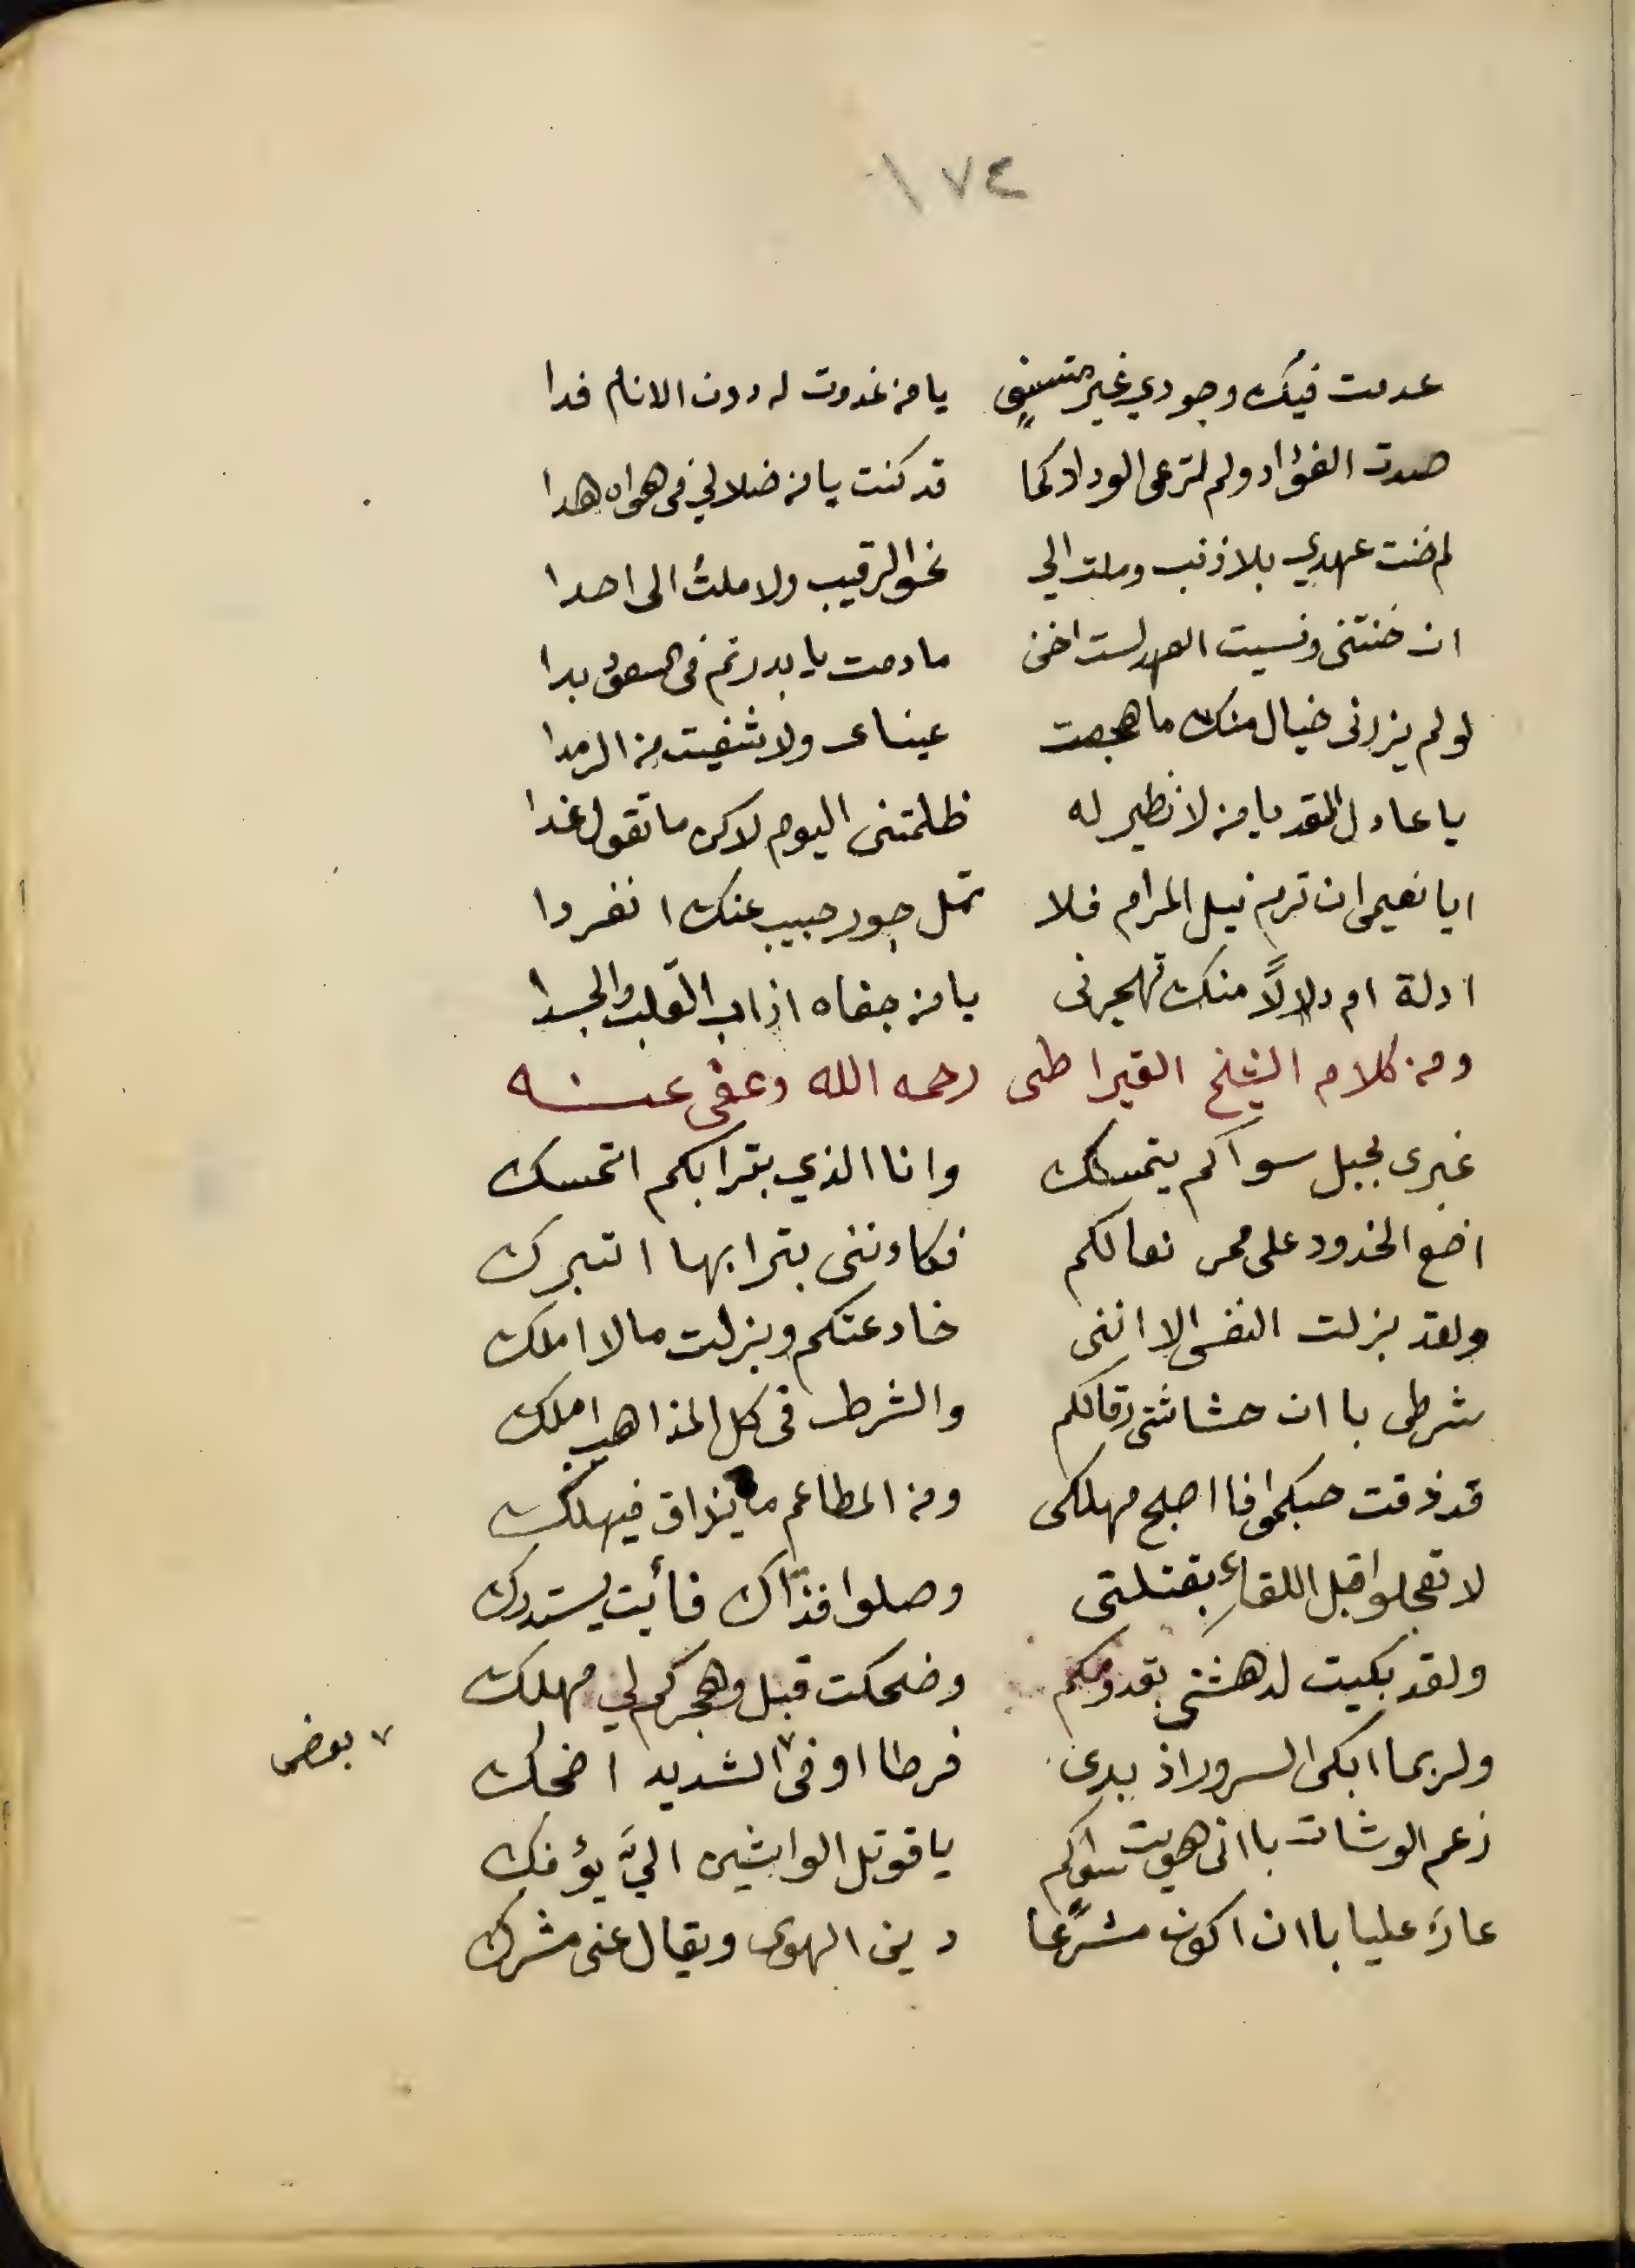 ١٧٤
عدمت فيك وجودي غير متسنٍ يا من غدوت له دون الانام فدا
صدت الفؤاد ولم ترعى الوداد كما قد كنت يا من ضلالي في هواه هدا
لم خنت عهدي بلا ذنب وملت الي نحو الرقيب ولا ملتُ الى احدا
ان خنتنى ونسيت العهد لست اخن ما دمت يا بدر تم في السعود بدا
لو لم يزرنى خيال منك ما هجعت عيناى ولا شفيت من الرمدا
يا عادل القد يا من لا نظير له ظلمتنى اليوم لاكن ما تقول غدا
ايا نعيمى ان ترم نيل المرام فلا تمل جور حبيب عنك انفردا
ادلة ام دلالاً منك تهجرنى يا من جفاه اذاب القلب والجسدا
ومن كلام الشيخ القيراطى رحمه الله وعفى عنه
غيرى بحبل سواكم يتمسك وانا الذي بترابكم اتمسك
اضع الخدود على ممر نعالكم فكاننى بترابها اتبرك
ولقد بزلت النفس الا اننى خادعتكم وبزلت مالا املك
شرطى باان حشاشتى رقالكم والشرط فى كل المذاهب املك
قد ذقت حبكموا فااصبح مهلكى ومن المطاعم ما يذاق فيهلك
لا تعجلوا قبل اللقاءِ بقتلتى وصلوا فذاك فأيت يستدرك
ولقد بكيت لدهشتى بقدومكم وضحكت قبل وهجركم لي مهلك
ولربما ابكى السرور اذ بدى فرطا اوفى ٧ الشديد اضحك
٧ بعض
زعم الوشات باانى هويت سواكم يا قوتل الواشين اليَّ يؤفك
عارٌ عليا باان اكون مشرِّعا دين الهوى ويقال عنى مشرك